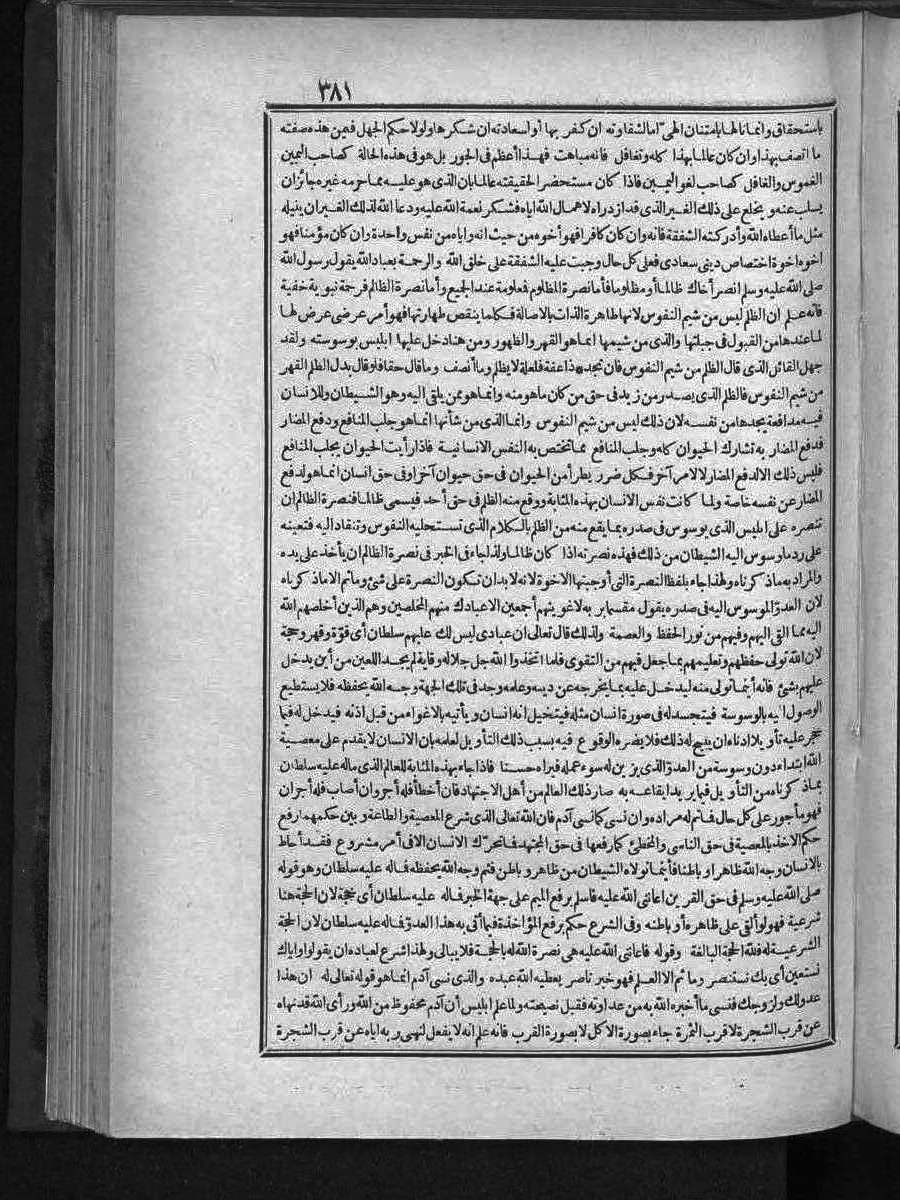 ٣٨١
باستحقاق وانما نالها بامتنان الهىّ اما لشقاوته ان كفر بها أو لسعادته ان شكرها ولولا حكم الجهل فيمن هذه صفته
ما اتصف بهذا وان كان عالما بهذا كله وتغافل فانه مباهت فهذا أعظم فى الجور بل هو فى هذه الحالة كصاحب اليمين
الغموس والغافل كصاحب لغو اليمين فاذا كان مستحضر الحقيقته عالما بان الذى هو عليه مما حرمه غيره جائز ان
يسلب عنه ويخلع على ذلك الغير الذى قد ازدراه لاهمال الله اياه فشكر نعمة الله عليه ودعا الله لذلك الغير ان ينيله
مثل ما أعطاه الله وأدركته الشفقة فانه وان كان كافرا فهو أخوه من حيث انه واياه من نفس واحدة وان كان مؤمنا فهو
اخوه اخوة اختصاص دينى سعادى فعلى كل حال وجبت عليه الشفقة على خلق الله والرحمة بعباد الله يقول رسول الله
صلى الله عليه وسلم انصر أخاك ظالما أو مظلوما فأما نصرة المظلوم فعلومة عند الجميع وأما نصرة الظالم فرحمة نبوية خفية
فانه علم ان الظلم ليس من شيم النفوس لانها طاهرة الذات بالاصالة فكلما ينقص طهارتها فهو أمر عرضى عرض لها
لما عندها من القبول فى جبلتها والذى من شيمها انما هو القهر والظهور ومن هنا دخل عليها ابليس بوسوسته ولقد
جهل القائل الذى قال الظلم من شيم النفوس فان تجد ذا عفة فلعلة لا يظلم وما أنصف وما قال حقا فلو قال بدل الظلم القهر
من شيم النفوس فالظلم الذى يصدر من زيد فى حق من كان ما هو منه وانما هو ممن يلقى اليه وهو الشيطان وللانسان
فيه مدافعة يجدها من نفسه لان ذلك ليس من شيم النفوس وانما الذى من شأنها انما هو جلب المنافع ودفع المضار
فدفع المضار به تشارك الحيوان كله وجلب المنافع مما تختص به النفس الانسانية فاذا رأيت الحيوان يجلب المنافع
فليس ذلك الا لدفع المضار لا لامر آخر فكل ضرر يطرأ من الحيوان فى حق حيوان آخر أو فى حق انسان انما هو لدفع
المضار عن نفسه خاصة ولما كانت نفس الانسان بهذه المثابة ووقع منه الظلم فى حق أحد فيسمى ظالما فنصرة الظالم ان
تنصره على ابليس الذى يوسوس فى صدره بما يقع منه من الظلم بالكلام الذى تستحليه النفوس وتنقاد اليه فتعينه
على رد ما وسوس اليه الشيطان من ذلك فهذه نصرته اذا كان ظالما ولذا جاء فى الخبر فى نصرة الظالم ان يأخذ على يده
والمراد به ما ذكرناه ولهذا جاء بلفظ النصرة التى أوجبتها الاخوة لانه لا بدان تكون النصرة على شئ وما ثم الا ما ذكرناه
لان العدوّ الموسوس اليه فى صدره يقول مقسما بر به لاغوينهم أجمعين الا عبادك منهم المخلصين وهم الذين أخلصهم الله
اليه مما القى اليهم وفيهم من نور الحفظ والعصمة ولذلك قال تعالى ان عبادى ليس لك عليهم سلطان أى قوّة وقهر وحجة
لان الله تولى حفظهم وتعليمهم بما جعل فيهم من التقوى فلما اتخذوا الله جل جلاله وقاية لم يجد اللعين من أين يدخل
عليهم بشئ فانه أينما تولى منه ليدخل عليه بما يخرجه عن دينه وعلمه وجد فى تلك الجهة وجه الله يحفظه فلا يستطيع
الوصول اليه بالوسوسة فيتجسد له فى صورة انسان مثله فيتخيل انه انسان ويأتيه بالاغواء من قبل اذنه فيدخل له فيما
حجر عليه تأويلا ادناه ان يبيح له ذلك فلا يضره الوقوع فيه بسبب ذلك التأويل لعلمه بان الانسان لا يقدم على معصية
الله ابتداء دون وسوسة من العدوّ الذى يزين له سوء عمله فيراه حسنا فاذا جاء بهذه المثابة للعالم الذى ماله عليه سلطان
بما ذكرناه من التأويل فيما يريد ايقاعه به صار ذلك العالم من أهل الاجتهاد فان أخطأ فله أجر وان أصاب فله أجران
فهو مأجور على كل حال فما تم له مراده وان نسى كما نسى آدم فان الله تعالى الذى شرع المعصية والطاعة وبين حكمهما رفع
حكم الاخذ بالمعصية فى حق الناسى والمخطئ كما رفعها فى حق المجتهد فما تحرّك الانسان الا فى أمر مشروع فقد أحاط
بالانسان وجه الله ظاهرا وباطنا فأينما تولاه الشيطان من ظاهر وباطن فثم وجه الله يحفظه فما له عليه سلطان وهو قوله
صلى الله عليه وسلم فى حق القرين اعاننى الله عليه فاسلم برفع الميم على جهة الخبر فما له عليه سلطان أى حجة لان الحجة هنا
شرعية فهو لو ألقى على ظاهره أو باطنه وفى الشرع حكم برفع المؤاخذة فيما أتى به هذا العدوّ فما له عليه سلطان لان الحجة
الشرعية له فلله الحجة البالغة وقوله فاعاننى الله عليه هى نصرة الله له بالحجة فلا يبالى ولهذا شرع لعباده ان يقولوا واياك
نستعين أى بك نستنصر وما ثم الا العلم فهو خير ناصر يعطيه الله عبده والذى نسى آدم انما هو قوله تعالى له ان هذا
عدو لك ولزوجك فنسى ما أخبره الله به من عداوته فقبل نصيحته ولما علم ابليس أن آدم محفوظ من الله ورأى الله قد نهاه
عن قرب الشجرة لا قرب الثمرة جاء بصورة الاكل لا بصورة القرب فانه علم انه لا يفعل لنهى ربه اياه عن قرب الشجرة